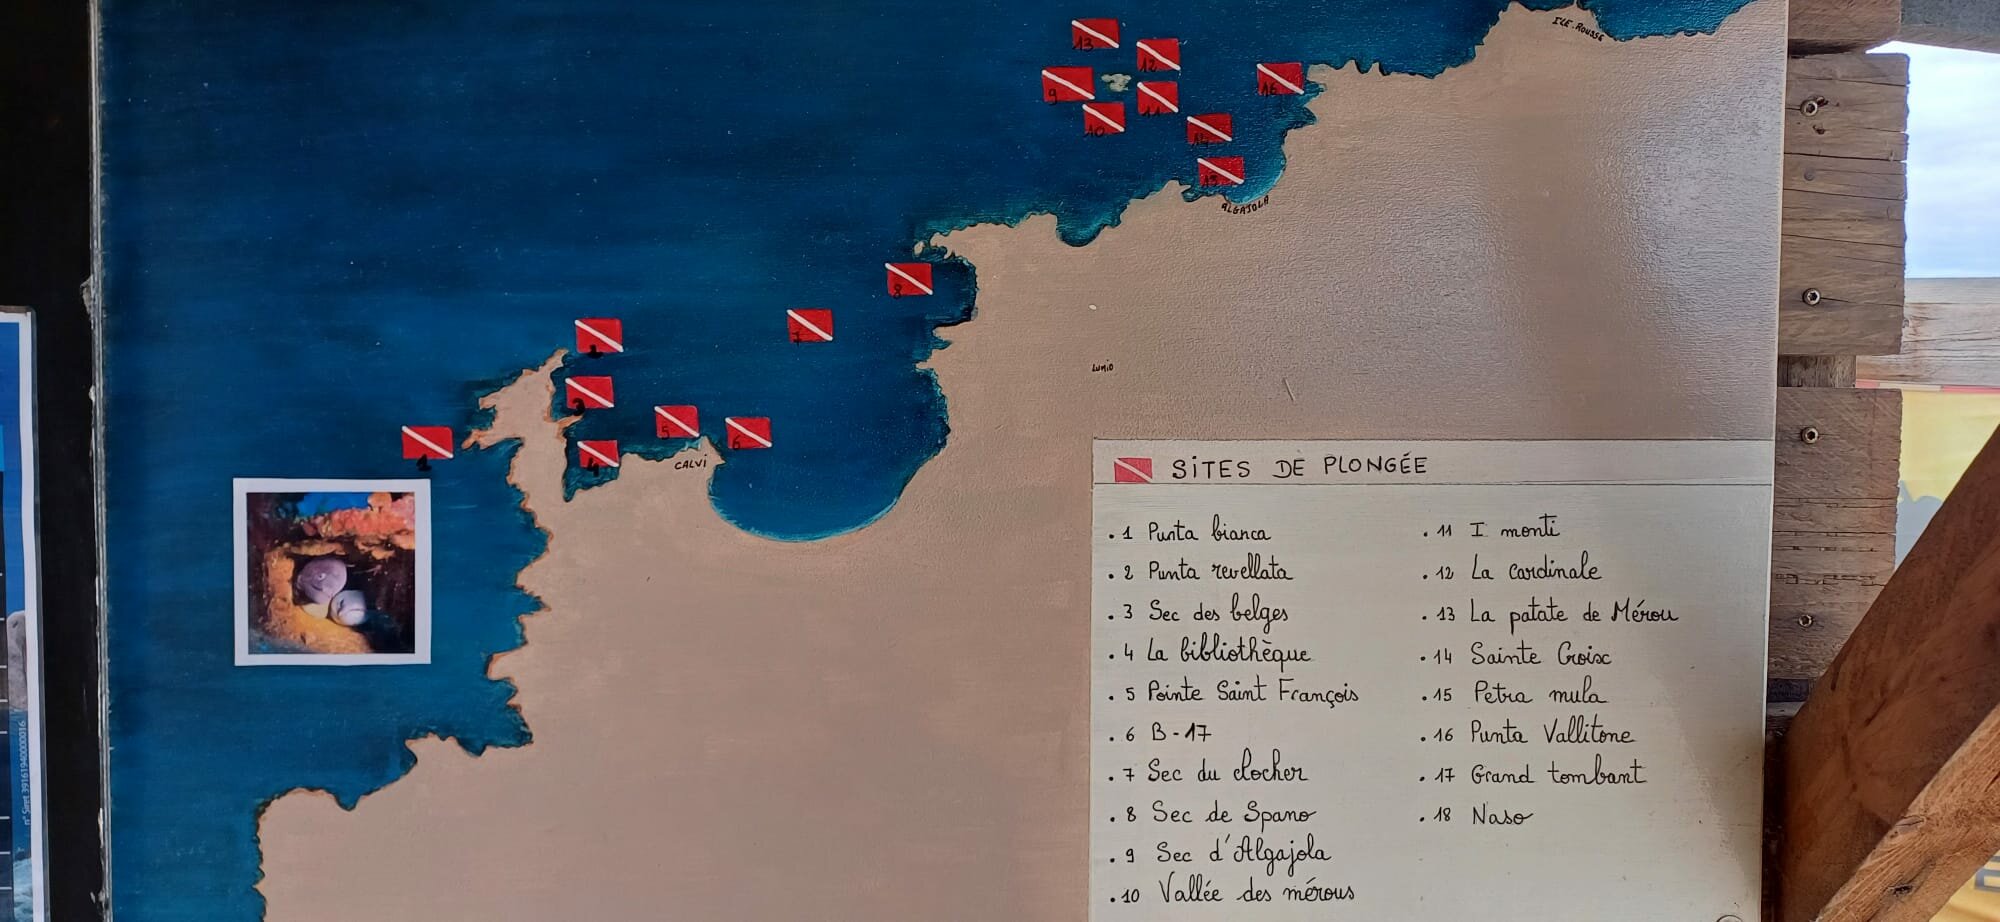 13
12
ILE-ROUSSE
9
16
10
11
14
15
ALGAJOLA
8
7
2
LUMIO
3
5
6
1
4
CALVI
SITES DE PLONGÉE
. 1 Punta bianca
. 2 Punta revellata
. 3 Sec des belges
. 4 La bibliothèque
. 5 Pointe Saint François
. 6 B-17
. 7 Sec du clocher
. 8 Sec de Spano
. 9 Sec d'Algajola
. 10 Vallée des mérous
. 11 I monti
. 12 La cardinale
. 13 La patate de Mérou
. 14 Sainte Croix
. 15 Petra mula
. 16 Punta Vallitone
. 17 Grand tombant
. 18 Naso
n° Siret 39161940000016